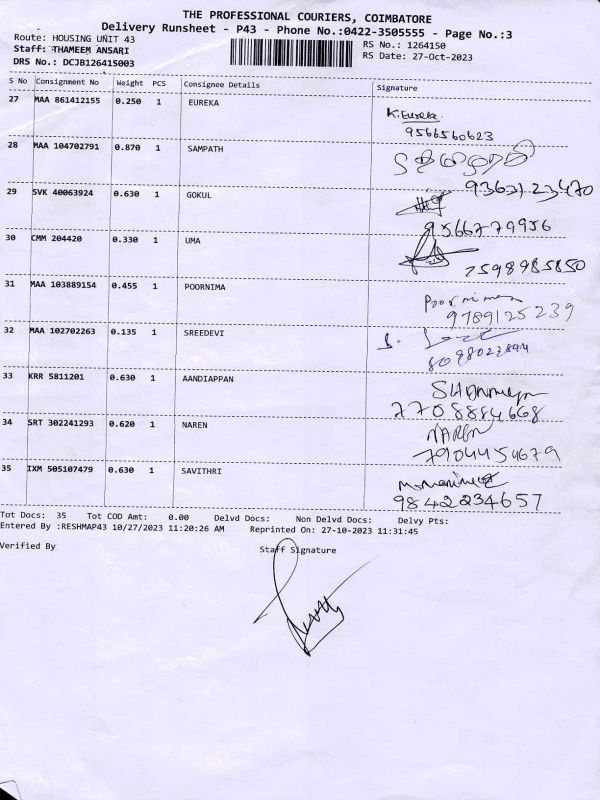 THE PROFESSIONAL COURIERS, COIMBATORE
Delivery Runsheet - P43 - Phone No.:0422-3505555 - Page No.:3
Route: HOUSING UNIT 43
RS No.: 1264150
Staff: THAMEEM ANSARI
RS Date: 27-Oct-2023
DRS No.: DCJB126415003
S No Consignment No Weight PCS Consignee Details Signature
27 MAA 861412155 0.250 1 EUREKA
K.Eureka
9566560623
28 MAA 104702791 0.870 1 SAMPATH
9363123470
29 SVK 40063924 0.630 1 GOKUL
9566779956
30 CMM 204420 0.330 1 UMA
7598985850
31 MAA 103889154 0.455 1 POORNIMA
Poornima
9789125239
32 MAA 102702263 0.135 1 SREEDEVI
33 KRR 5811201 0.630 1 AANDIAPPAN
7708884668
34 SRT 302241293 0.620 1 NAREN
NAREN
7904454679
35 IXM 505107479 0.630 1 SAVITHRI
9842234657
Tot Docs: 35 Tot COD Amt: 0.00 Delvd Docs: Non Delvd Docs: Delvy Pts:
Entered By :RESHMAP43 10/27/2023 11:20:26 AM Reprinted On: 27-10-2023 11:31:45
Verified By
Staff Signature